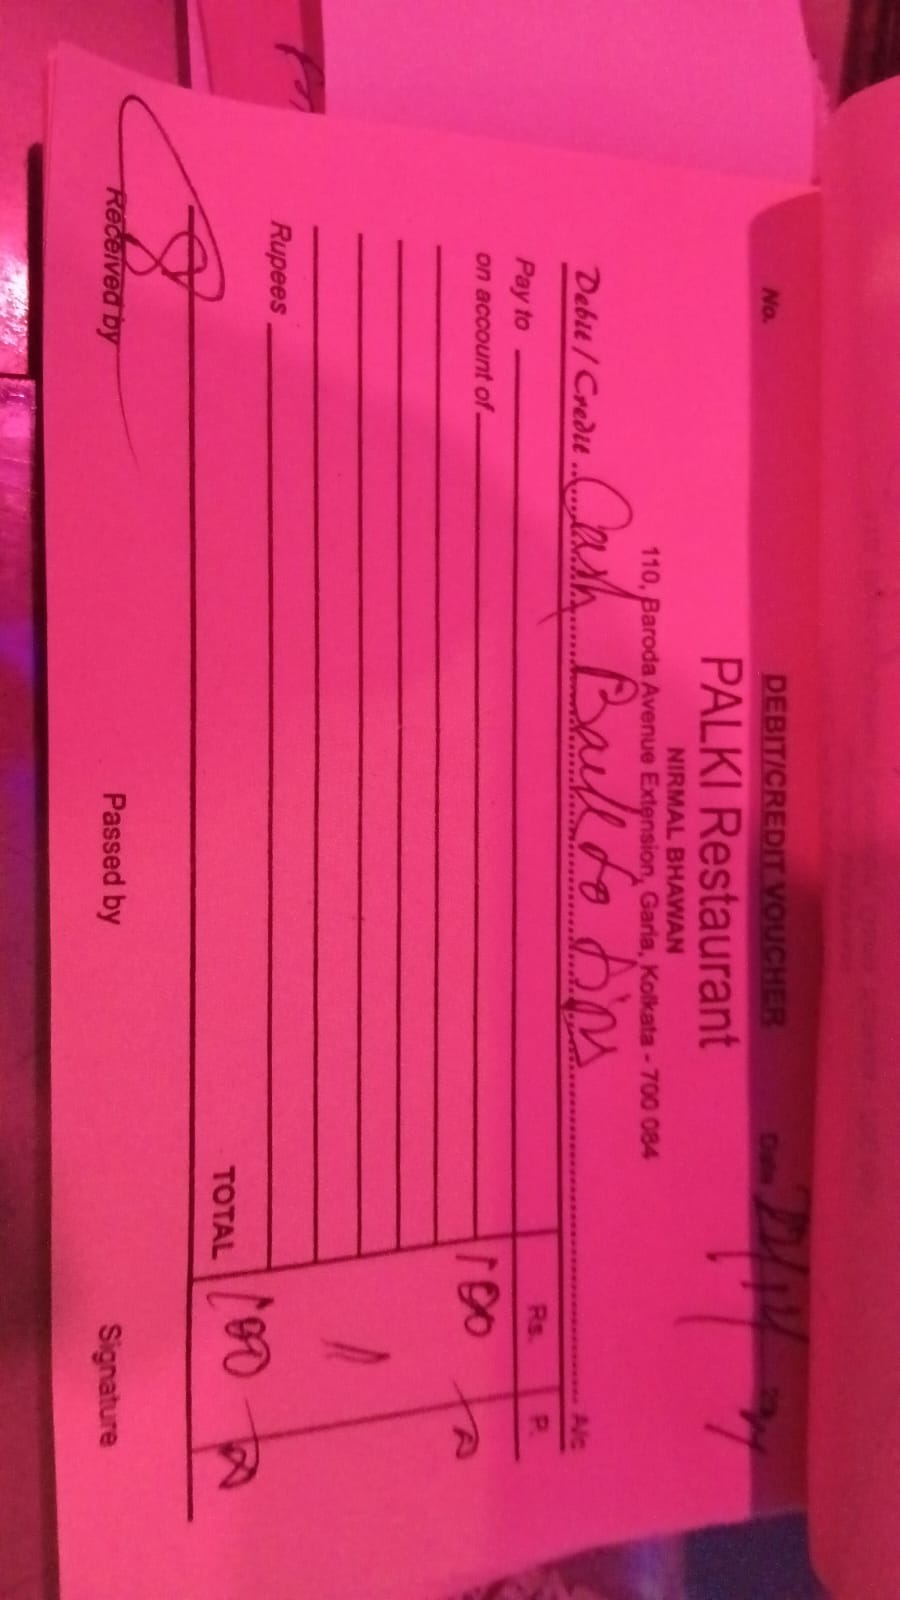 DEBIT/CREDIT VOUCHER
No. Date
PALKI Restaurant
NIRMAL BHAWAN
110, Baroda Avenue Extension, Garia, Kolkata - 700 084
Debit / Credit Cash Back to A/c
Pay to Rs. P.
on account of 100
Rupees
TOTAL 100
Received by Passed by Signature